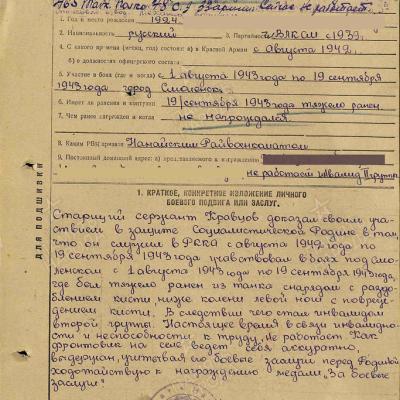 1. Год и место рождения 1924.
2. Национальность русский 3. Партийность чл. ВЛКСМ с 1939.
4. С какого времени (месяц, год) состоит: а) в Красной Армии с августа 1942.
б) в должностях офицерского состава
5. Участие в боях (где и когда) с 1 августа 1943 года по 19 сентября
1943 года город Смоленск
6. Имеет ли ранения и контузии 19 сентября 1943 года тяжело ранен.
7. Чем ранее награжден и когда не награждался.
8. Каким РВК призван Нанайским Райвоенкоматом
9. Постоянный домашний адрес:
не работает инвалид II группы
ДЛЯ ПОДШИВКИ
1. КРАТКОЕ, КОНКРЕТНОЕ ИЗЛОЖЕНИЕ ЛИЧНОГО
БОЕВОГО ПОДВИГА ИЛИ ЗАСЛУГ.
Старший сержант Кравцов доказал своим учас-
твием в защите Социалистической Родине в том,
что он служил в РККА с августа 1942 года по
19 сентября 1943 года участвовал в боях под Смо-
ленском с 1 августа 1943 года по 19 сентября 1943 года,
где был тяжело ранен из танка снарядом с раздр-
облением кисти, ниже колени левой ног с повреж-
дением кисти. В следствии чего стал инвалидом
второй группы. Настоящее время в связи инвалидно-
сти и неспособности к труду, не работает. Как
фронтовик на селе ведет себя аккуратно,
выдержан, учитывая его боевые заслуги перед Родиной
ходотайствую к награждению медали „За боевые
заслуги"